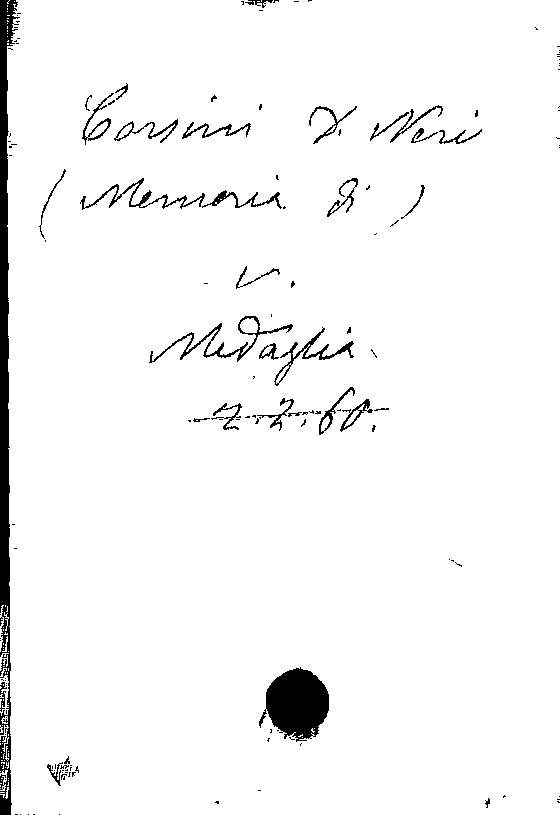 Corsini D. Neri
(Memoria di)
v.
Medaglia
2.2.60.